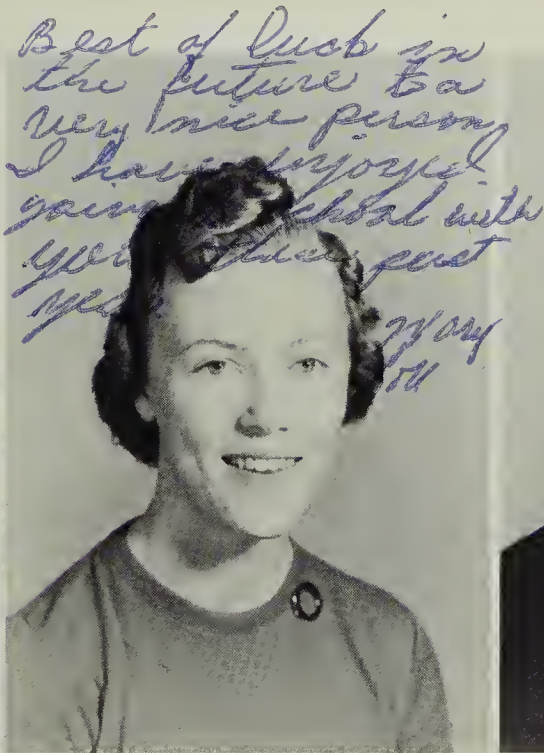 Best of luck in
the future to a
very nice person
I have enjoyed
going school with
you this past
year
Mary